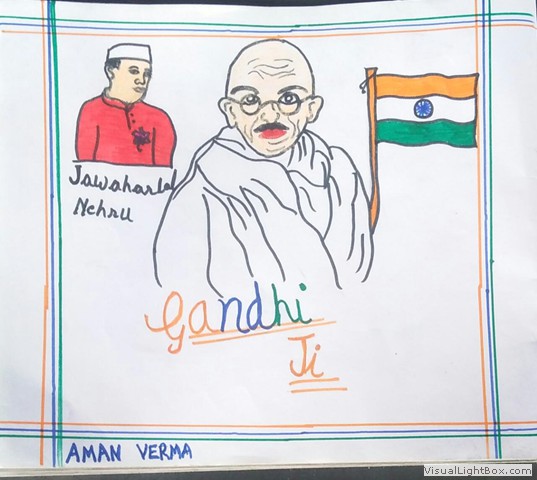 Jawaharlal
Nehru
Gandhi
Ji
AMAN VERMA
VisualLightBox.com